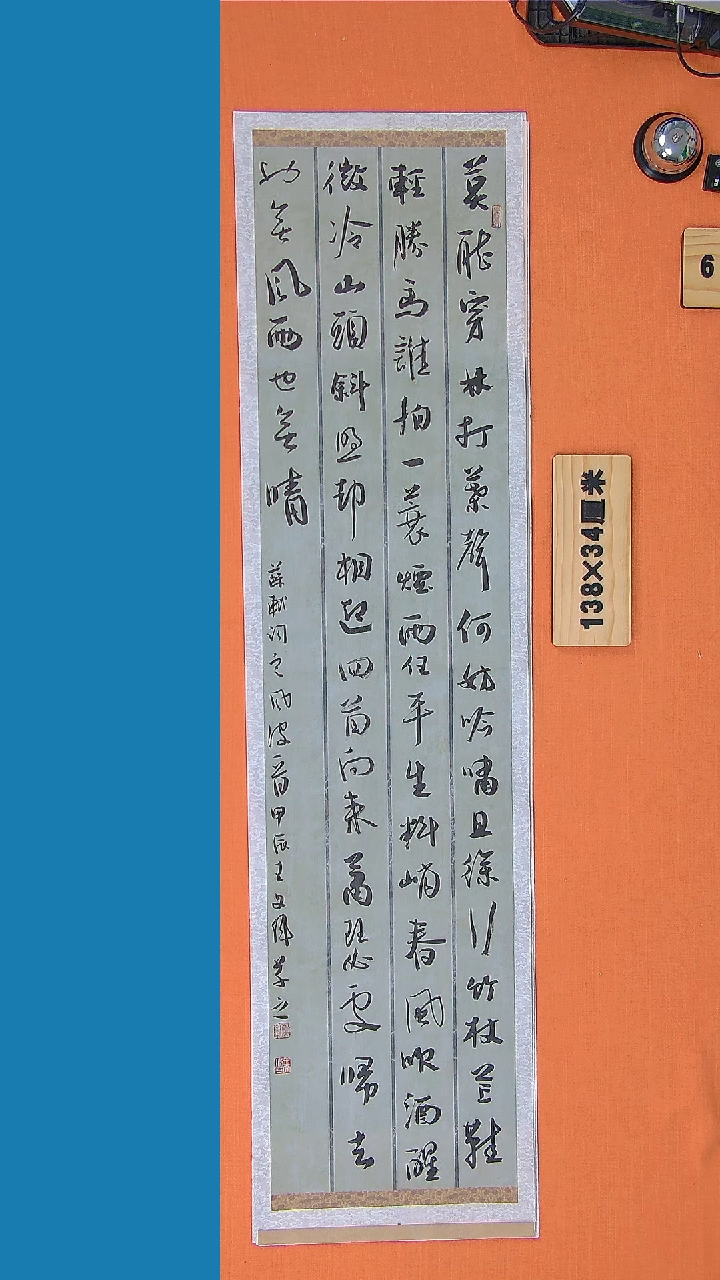 莫聽穿林打葉聲何妨吟嘯且徐行竹杖芒鞋
輕勝馬誰怕一蓑煙雨任平生料峭春風吹酒醒
微冷山頭斜照却相迎回首向來蕭瑟處歸去
也無風雨也無晴
蘇軾詞定風波一首甲辰王文
138×34厘米
6